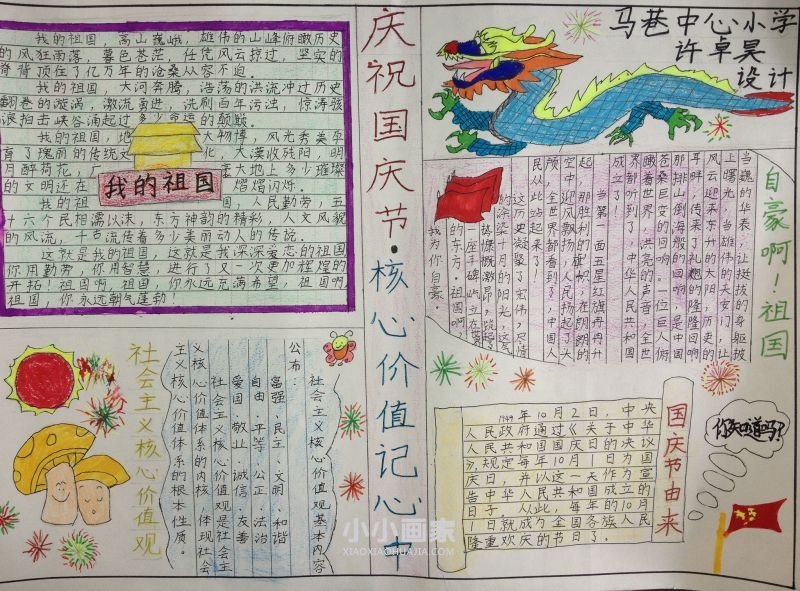 庆祝国庆节·核心价值记心中
马巷中心小学
许卓昊
设计
我的祖国，高山巍峨，雄伟的山峰俯瞰历史
的风狂雨落，暮色苍茫，任凭风云掠过，坚实的
脊背顶住了亿万年的沧桑从容不迫。
我的祖国，大河奔腾，浩荡的洪流冲过历史
翻卷的漩涡，激流勇进，洗刷百年污浊，惊涛骇
浪拍击峡谷涌起过多少命运的颠颠。
我的祖国，地
大物博，风光秀美孕
育了瑰丽的传统文
化，大漠收残阳，明
月醉荷花，广
豪大地上多少璀璨
的文明还在
熠熠闪烁。
我的祖
国，人民勤劳，五
十六个民相濡以沫，东方神韵的精彩，人文风貌
的风流，千古流传着多少美丽动人的传说。
这就是我的祖国，这就是我深深爱恋的祖国
你用勤劳，你用智慧，进行了又一次更加辉煌的
开拓！祖国啊，祖国，你永远充满希望，祖国啊，
祖国，你永远朝气蓬勃！
我的祖国
自豪啊！祖国
当巍的华表，让挺拔的身躯披
上曙光，当雄伟的天安门，让
风云迎来东升的太阳，历史的
耳畔，传来了礼炮的隆隆回响，
那排山倒海般的回响，是中国
苍桑巨变的回响。一位巨人俯
瞰着世界，洪亮的声音，全世
界都听到了，中华人民共和国
成立了！
当第一面五星红旗冉冉升
起，那胜利的旗帜，在朗朗的
空中迎风飘扬，人民扬起了大
颅，全世界都看到了，中国人
民从此站起来了！
这历史凝聚了宏伟，尽情
的涂染十月的阳光，这
一座丰碑屹立在世
的东方。祖国啊
我为你自豪。
社会主义核心价值观
社会主义核心价值观基本内容
公布：
富强、民主、文明、和谐
自由、平等、公正、法治
爱国、敬业、诚信、友善
社会主义核心价值观是社会主
义核心价值体系的内核，体现社会
主义核心价值体系的根本性质。
国庆节由来
1949年10月2日，中央
人民政府通过《关于中华
人民共和国国庆日的决议
》，规定每年10月1日为国
庆日，并以这一天作为宣
告中华人民共和国成立的
日子，从此，每年的10月
1日就成为全国各族人民
隆重欢庆的节日了。
你知道吗？
小小画家
XIAOXIAOHUAJIA.COM